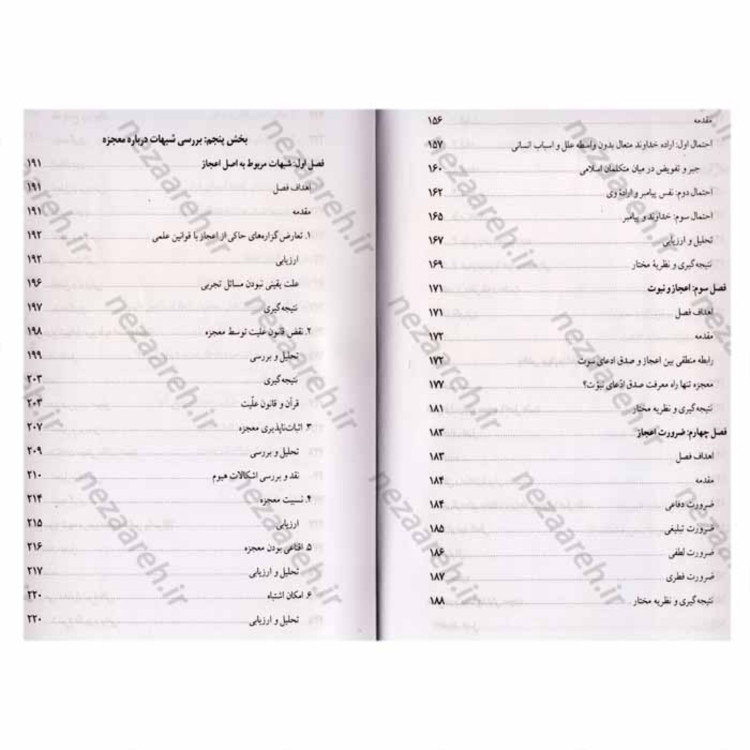 مقدمه ۱۵۶
احتمال اول: اراده خداوند متعال بدون واسطه علل و اسباب انسانی ۱۵۷
جبر و تفویض در میان متکلمان اسلامی ۱۶۰
احتمال دوم: نفس پیامبر و اراده وی ۱۶۲
احتمال سوم: خداوند و پیامبر ۱۶۵
تحلیل و ارزیابی ۱۶۷
نتیجه‌گیری و نظریه مختار ۱۶۹
فصل سوم: اعجاز و نبوت ۱۷۱
اهداف فصل ۱۷۱
مقدمه ۱۷۲
رابطه منطقی بین اعجاز و صدق ادعای نبوت ۱۷۲
معجزه تنها راه معرفت صدق ادّعای نبوّت؟ ۱۷۷
نتیجه‌گیری و نظریه مختار ۱۸۱
فصل چهارم: ضرورت اعجاز ۱۸۳
اهداف فصل ۱۸۳
مقدمه ۱۸۴
ضرورت دفاعی ۱۸۴
ضرورت تبلیغی ۱۸۵
ضرورت لطفی ۱۸۶
ضرورت فطری ۱۸۷
نتیجه‌گیری و نظریه مختار ۱۸۸
بخش پنجم: بررسی شبهات درباره معجزه
فصل اول: شبهات مربوط به اصل اعجاز ۱۹۱
اهداف فصل ۱۹۱
مقدمه ۱۹۱
۱. تعارض گزاره‌های حاکی از اعجاز با قوانین علمی ۱۹۲
ارزیابی ۱۹۲
علت یقینی نبودن مسائل تجربی ۱۹۶
نتیجه‌گیری ۱۹۷
۲. نقض قانون علیت توسط معجزه ۱۹۸
تحلیل و بررسی ۱۹۹
نتیجه‌گیری ۲۰۳
قرآن و قانون علّیت ۲۰۴
۳. اثبات‌ناپذیری معجزه ۲۰۷
تحلیل و بررسی ۲۰۹
نقد و بررسی اشکالات هیوم ۲۱۰
۴. نسبیت معجزه ۲۱۴
ارزیابی ۲۱۵
۵. اقناعی بودن معجزه ۲۱۶
تحلیل و ارزیابی ۲۱۷
۶. امکان اشتباه ۲۲۰
تحلیل و ارزیابی ۲۲۰
nezaareh.ir
nezaareh.ir
nezaareh.ir
nezaareh.ir
nezaareh.ir
nezaareh.ir